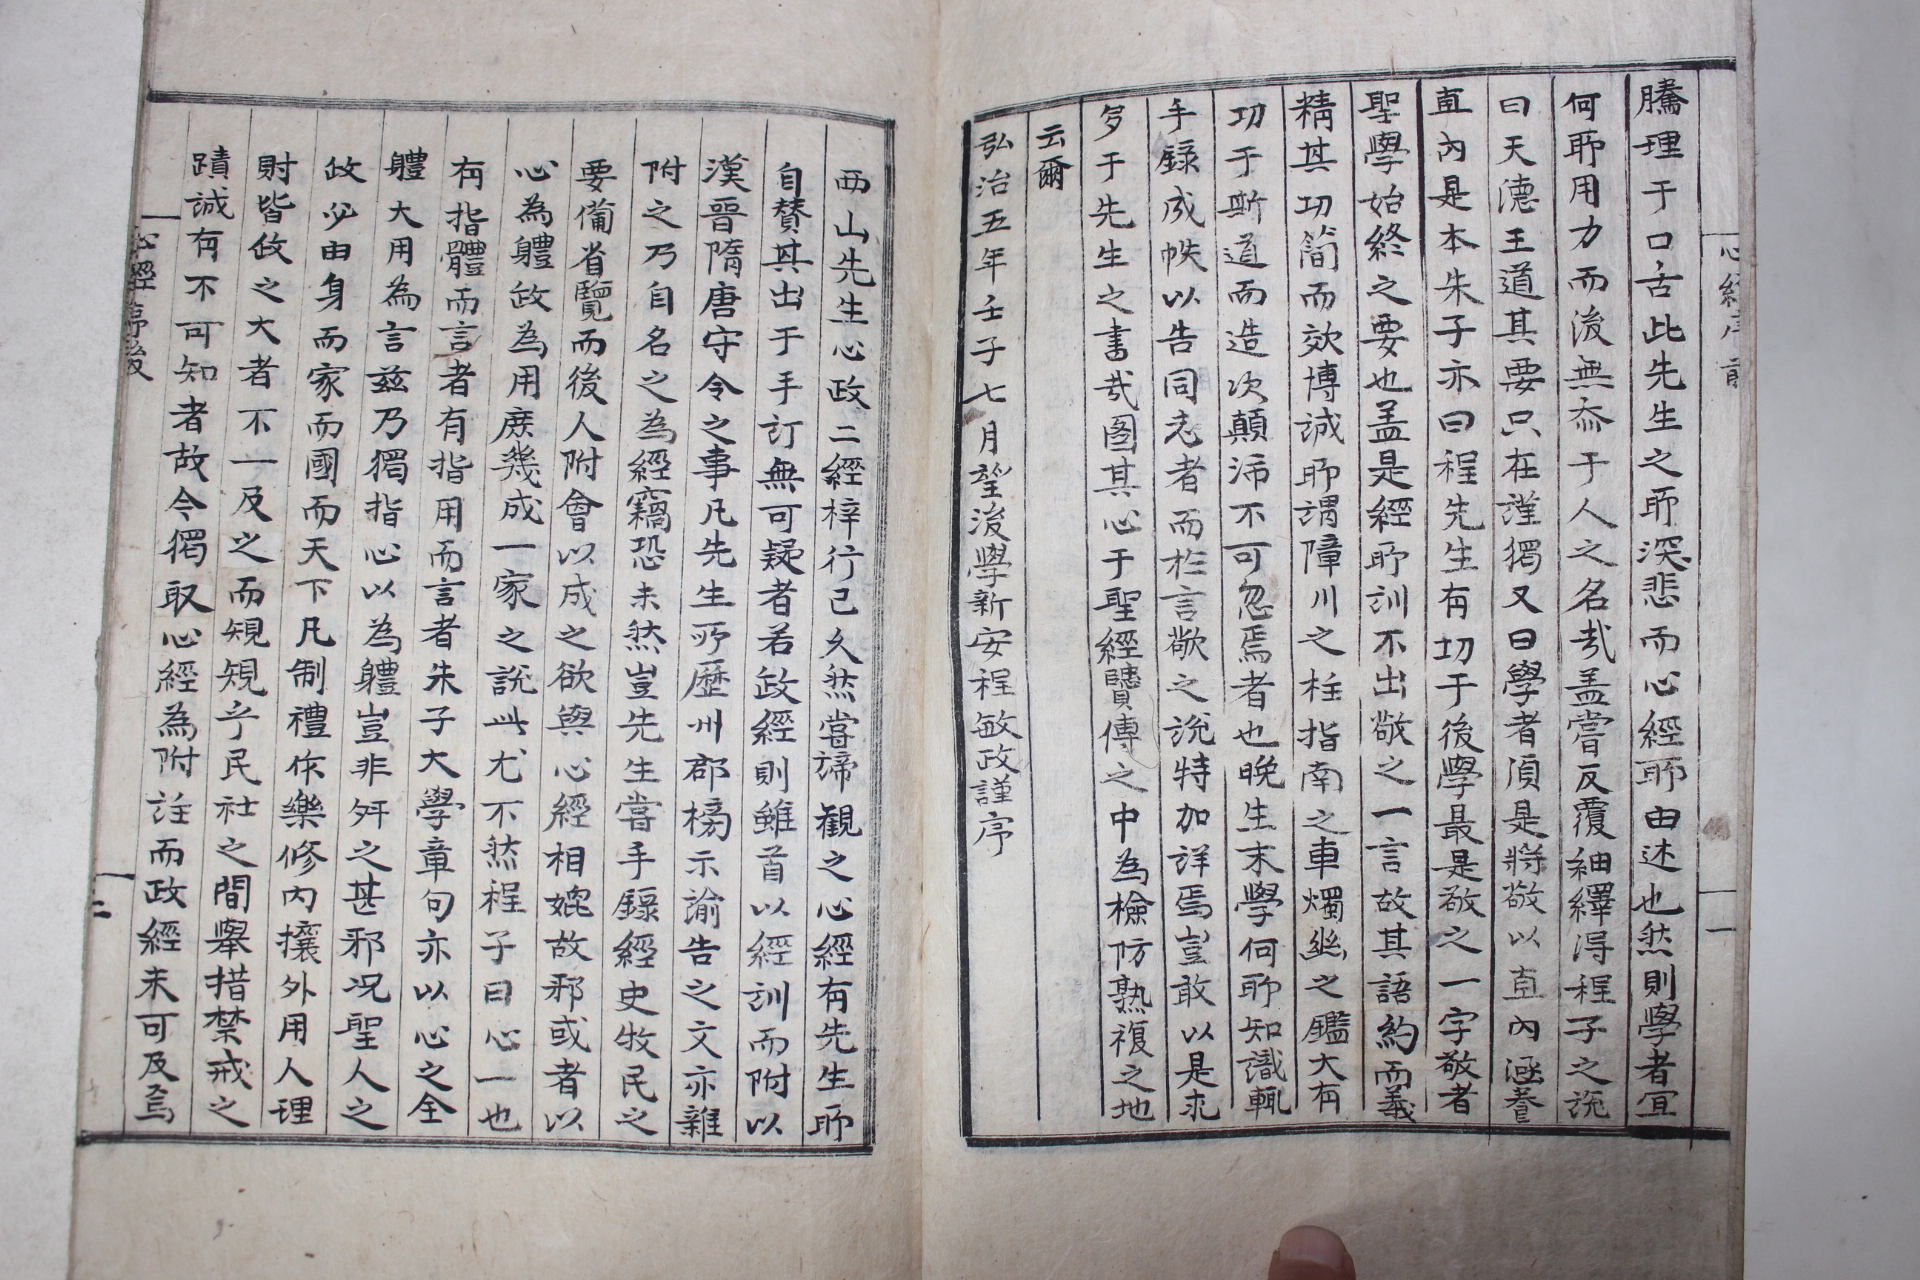 心經序前
一
騰理于口舌此先生之所深悲而心經所由述也然則學者宜
何所用力而後無忝于人之名哉盖嘗反覆紬繹得程子之說
曰天德王道其要只在謹獨又曰學者須是將敬以直內涵養
直內是本朱子亦曰程先生有切于後學最是敬之一字敬者
聖學始終之要也盖是經所訓不出敬之一言故其語約而義
精其功簡而效博誠所謂障川之柱指南之車燭幽之鑑大有
功于斯道而造次顛沛不可忽焉者也晚生末學何所知識輒
手錄成帙以告同志者而於言敬之說特加詳焉豈敢以是求
多于先生之書哉図其心于聖經賢傳之中為檢防熟複之地
云爾
弘治五年壬子七月望後學新安程敏政謹序
西山先生心政二經梓行已久然嘗諦觀之心經有先生所
自賛其出于手訂無可疑者若政經則雖首以經訓而附以
漢晉隋唐守令之事凡先生所歷州郡榜示諭告之文亦雜
附之乃自名之為經竊恐未然豈先生嘗手錄經史牧民之
要備省覽而後人附會以成之欲與心經相媲故邪或者以
心為體政為用庶幾成一家之說此尤不然程子曰心一也
有指體而言者有指用而言者朱子大學章句亦以心之全
體大用為言茲乃獨指心以為體豈非舛之甚邪况聖人之
政必由身而家而國而天下凡制禮作樂修內攘外用人理
財皆政之大者不一及之而規規乎民社之間擧措禁戒之
蹟誠有不可知者故今獨取心經為附註而政經未可及焉
心經序後
二